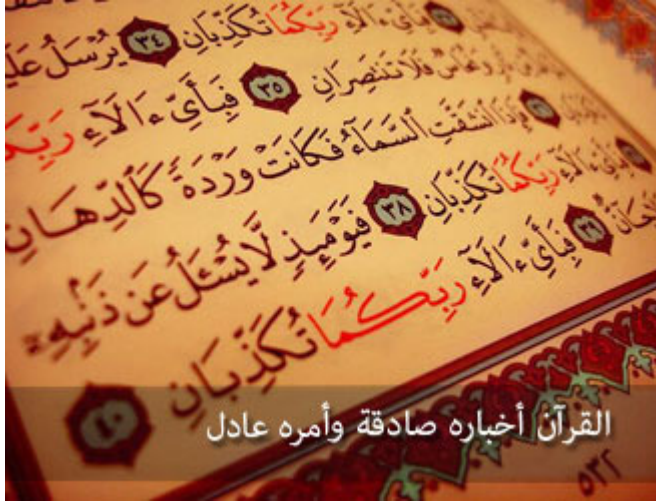 فَبِأَيِّ ءَالَآءِ رَبِّكُمَا تُكَذِّبَانِ ٣٤ يُرْسَلُ
وَنُحَاسٌ فَلَا تَنتَصِرَانِ ٣٥ فَبِأَيِّ ءَالَآءِ
تُكَذِّبَانِ ٣٦ فَإِذَا ٱنشَقَّتِ ٱلسَّمَآءُ فَكَانَتْ وَرْدَةً كَٱلدِّهَانِ
فَبِأَيِّ ءَالَآءِ رَبِّكُمَا تُكَذِّبَانِ ٣٨ فَيَوْمَئِذٍ لَّا يُسْـَٔلُ عَن ذَنۢبِهِۦٓ
جَآنٌّ ٣٩ فَبِأَيِّ ءَالَآءِ رَبِّكُمَا تُكَذِّبَانِ ٤٠
القرآن أخباره صادقة وأمره عادل
٥٣٢